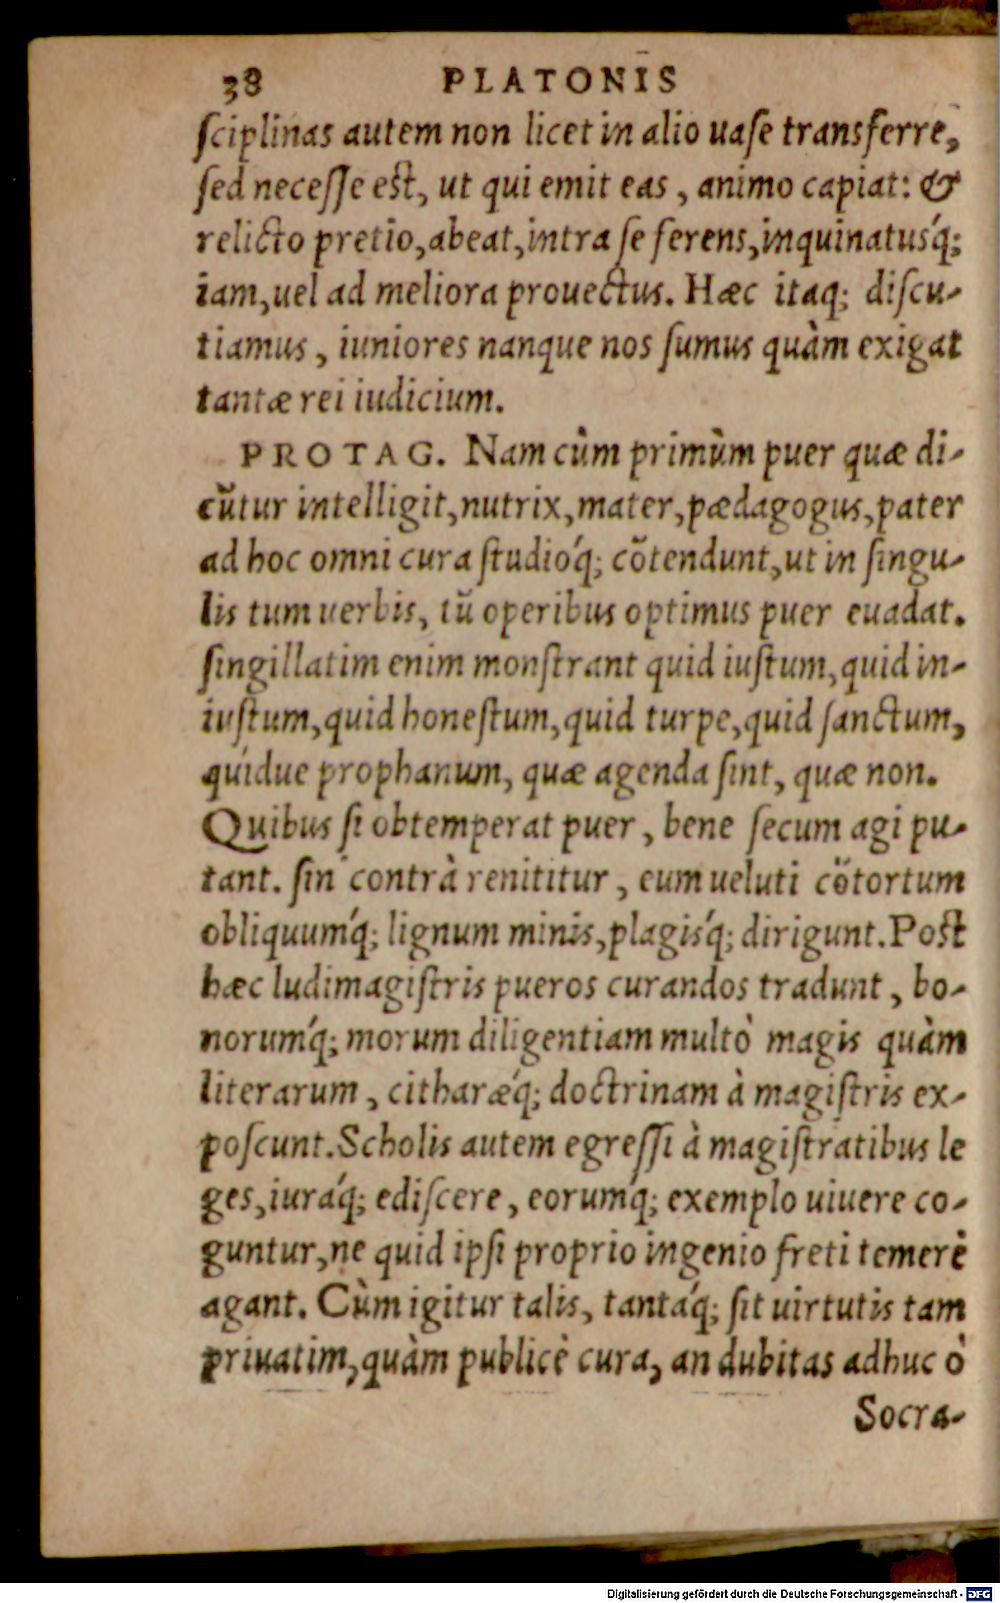 38 PLATONIS
ſciplinas autem non licet in alio uaſe transferre,
ſed neceſſe eſt, ut qui emit eas, animo capiat: &
relicto pretio, abeat, intra ſe ferens, inquinatusq́;
iam, uel ad meliora prouectus. Hæc itaq; diſcu-
tiamus, iuniores nanque nos ſumus quàm exigat
tantæ rei iudicium.
PROTAG. Nam cùm primùm puer quæ di-
cũtur intelligit, nutrix, mater, pædagogus, pater
ad hoc omni cura ſtudioq́; cõtendunt, ut in ſingu-
lis tum uerbis, tũ operibus optimus puer euadat.
ſingillatim enim monſtrant quid iuſtum, quid in-
iuſtum, quid honeſtum, quid turpe, quid ſanctum,
quidue prophanum, quæ agenda ſint, quæ non.
Quibus ſi obtemperat puer, bene ſecum agi pu-
tant. ſin contrà renititur, eum ueluti cõtortum
obliquumq́; lignum minis, plagisq́; dirigunt. Poſt
hæc ludimagiſtris pueros curandos tradunt, bo-
norumq́; morum diligentiam multò magis quàm
literarum, citharæq́; doctrinam à magiſtris ex-
poſcunt. Scholis autem egreſſi à magiſtratibus le
ges, iuraq́; ediſcere, eorumq́; exemplo uiuere co-
guntur, ne quid ipſi proprio ingenio freti temerè
agant. Cùm igitur talis, tantaq́; ſit uirtutis tam
priuatim, quàm publicè cura, an dubitas adhuc ò
Socra-
Digitalisierung gefördert durch die Deutsche Forschungsgemeinschaft - DFG